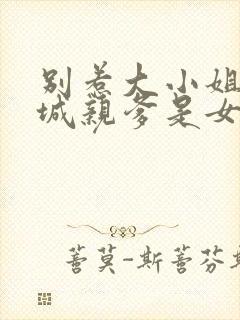 别惹大小姐
城亲爹是女
蔷莫-斯蔷芬斯